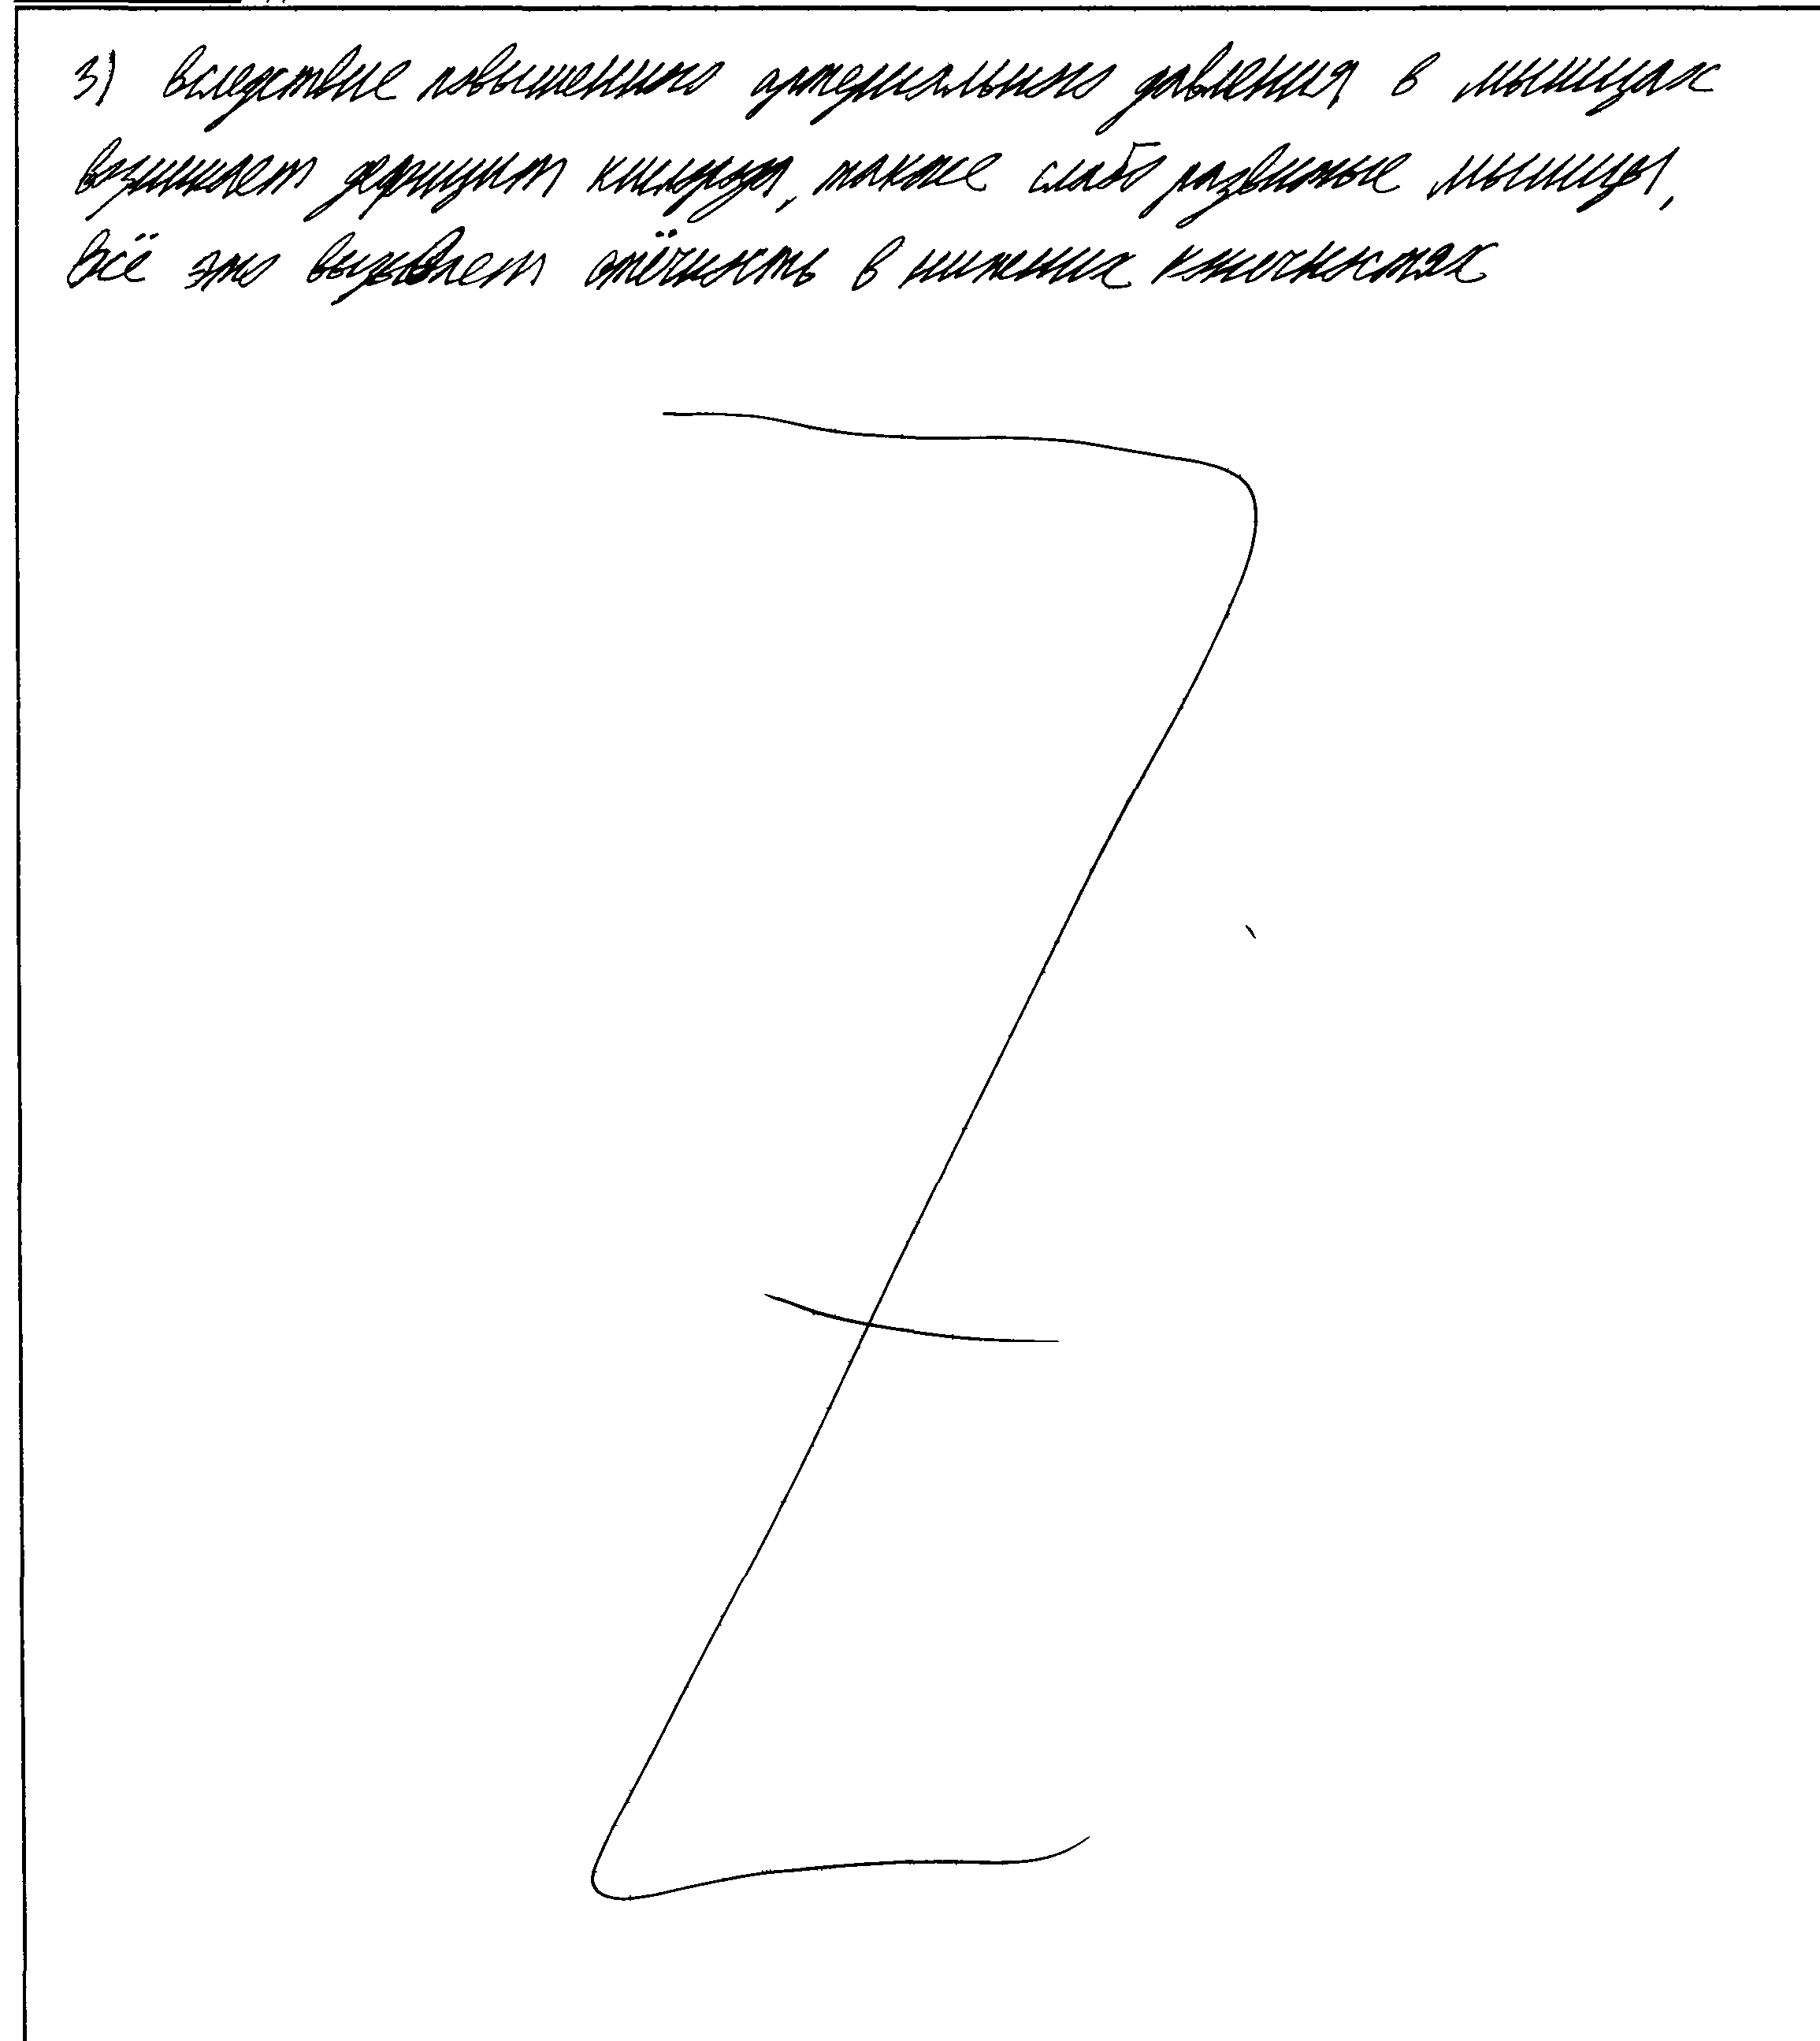 3) вследствие повышенного артериального давления в мышцах
возникает дефицит кислорода, также слабо развитые мышцы,
всё это вызывает отёчность в нижних конечностях